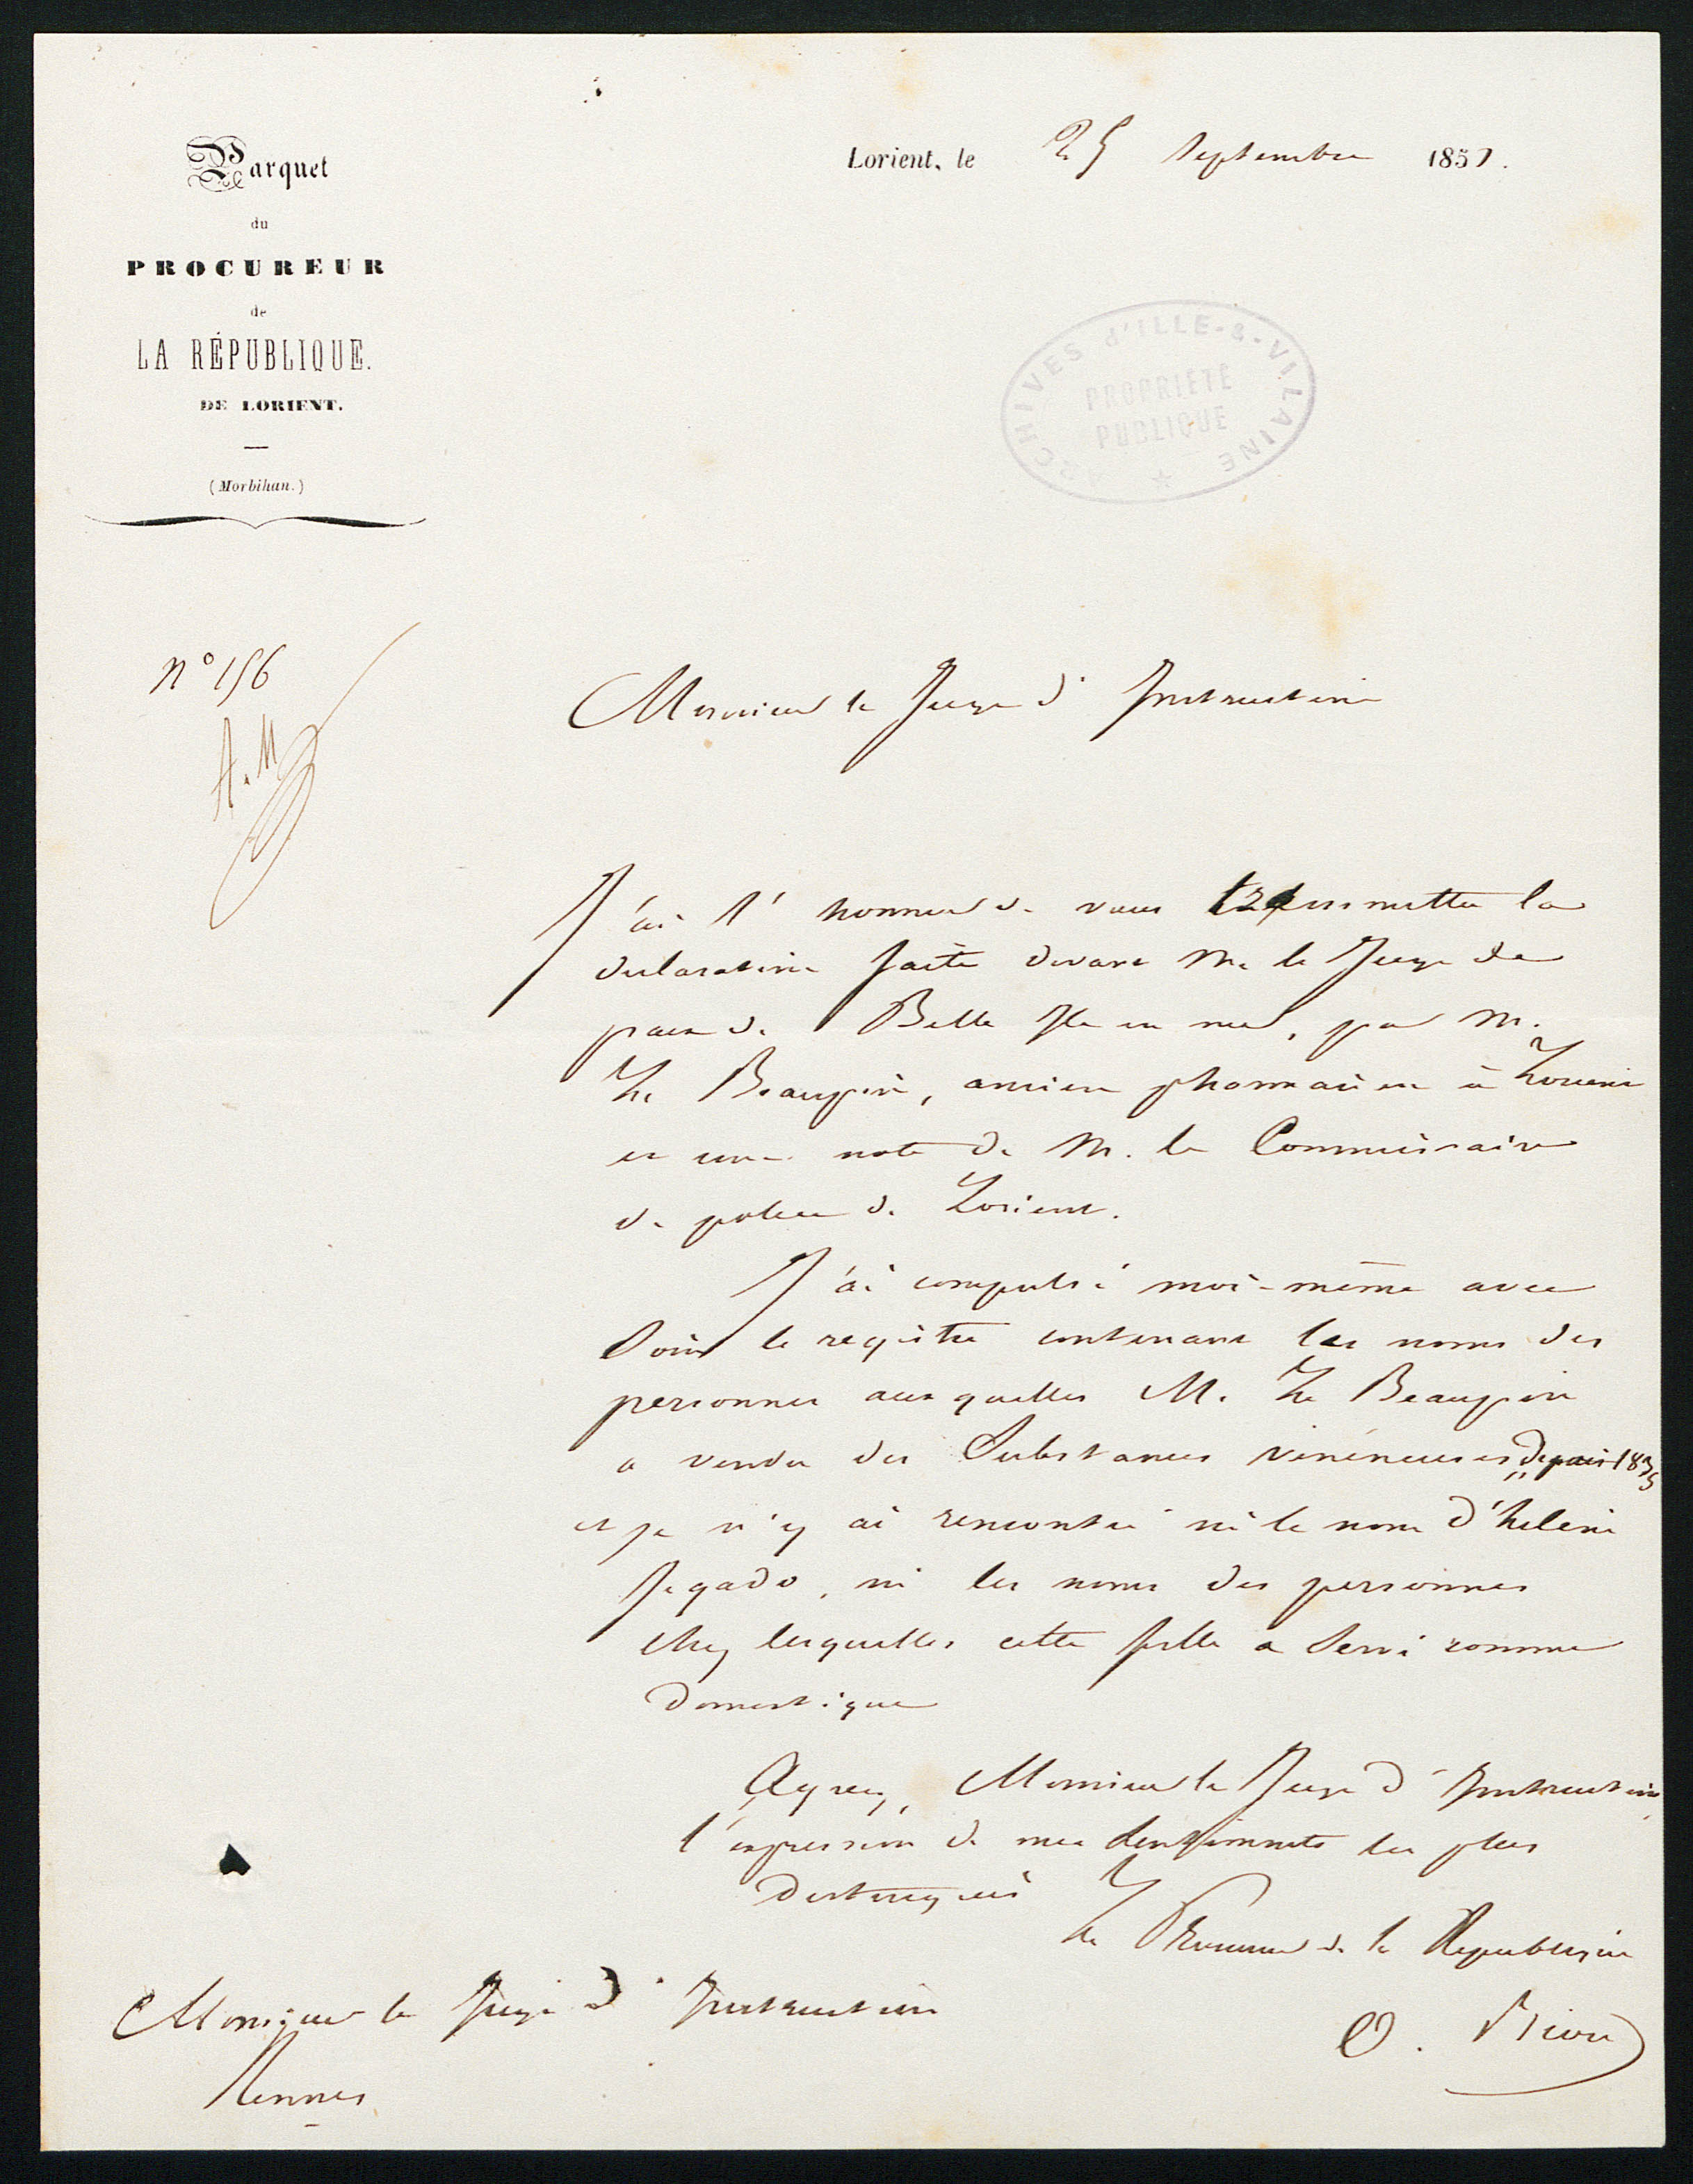 Parquet
du
PROCUREUR
de
LA RÉPUBLIQUE.
DE LORIENT.
(Morbihan.)
Lorient, le 25 Septembre 1851.
ARCHIVES d'ILLE-&-VILAINE
PROPRIÉTÉ
PUBLIQUE
N° 156
A. M
Monsieur le Juge d'Instruction
J'ai l'honneur de vous transmettre la
declaration faite devant Mr le Juge de
paix de Belle Ile en mer, par M.
Le Beaupin, ancien pharmacien à Lorient
et une note de M. le Commissaire
de police de Lorient.
J'ai compulsé moi-même avec
Soin le registre contenant les noms des
personnes auxquelles M. Le Beaupin
a vendu des Substances vénéneuses depuis 1835
et je n'y ai rencontré ni le nom d'helene
Jegado, ni les noms des personnes
chez lesquelles cette fille a Servi comme
Domestique
Agreez, Monsieur le Juge d'Instruction,
l'expression de mes Sentiments les plus
Distingués
Le Procureur de la Republique
Monsieur le Juge d'Instruction
Rennes